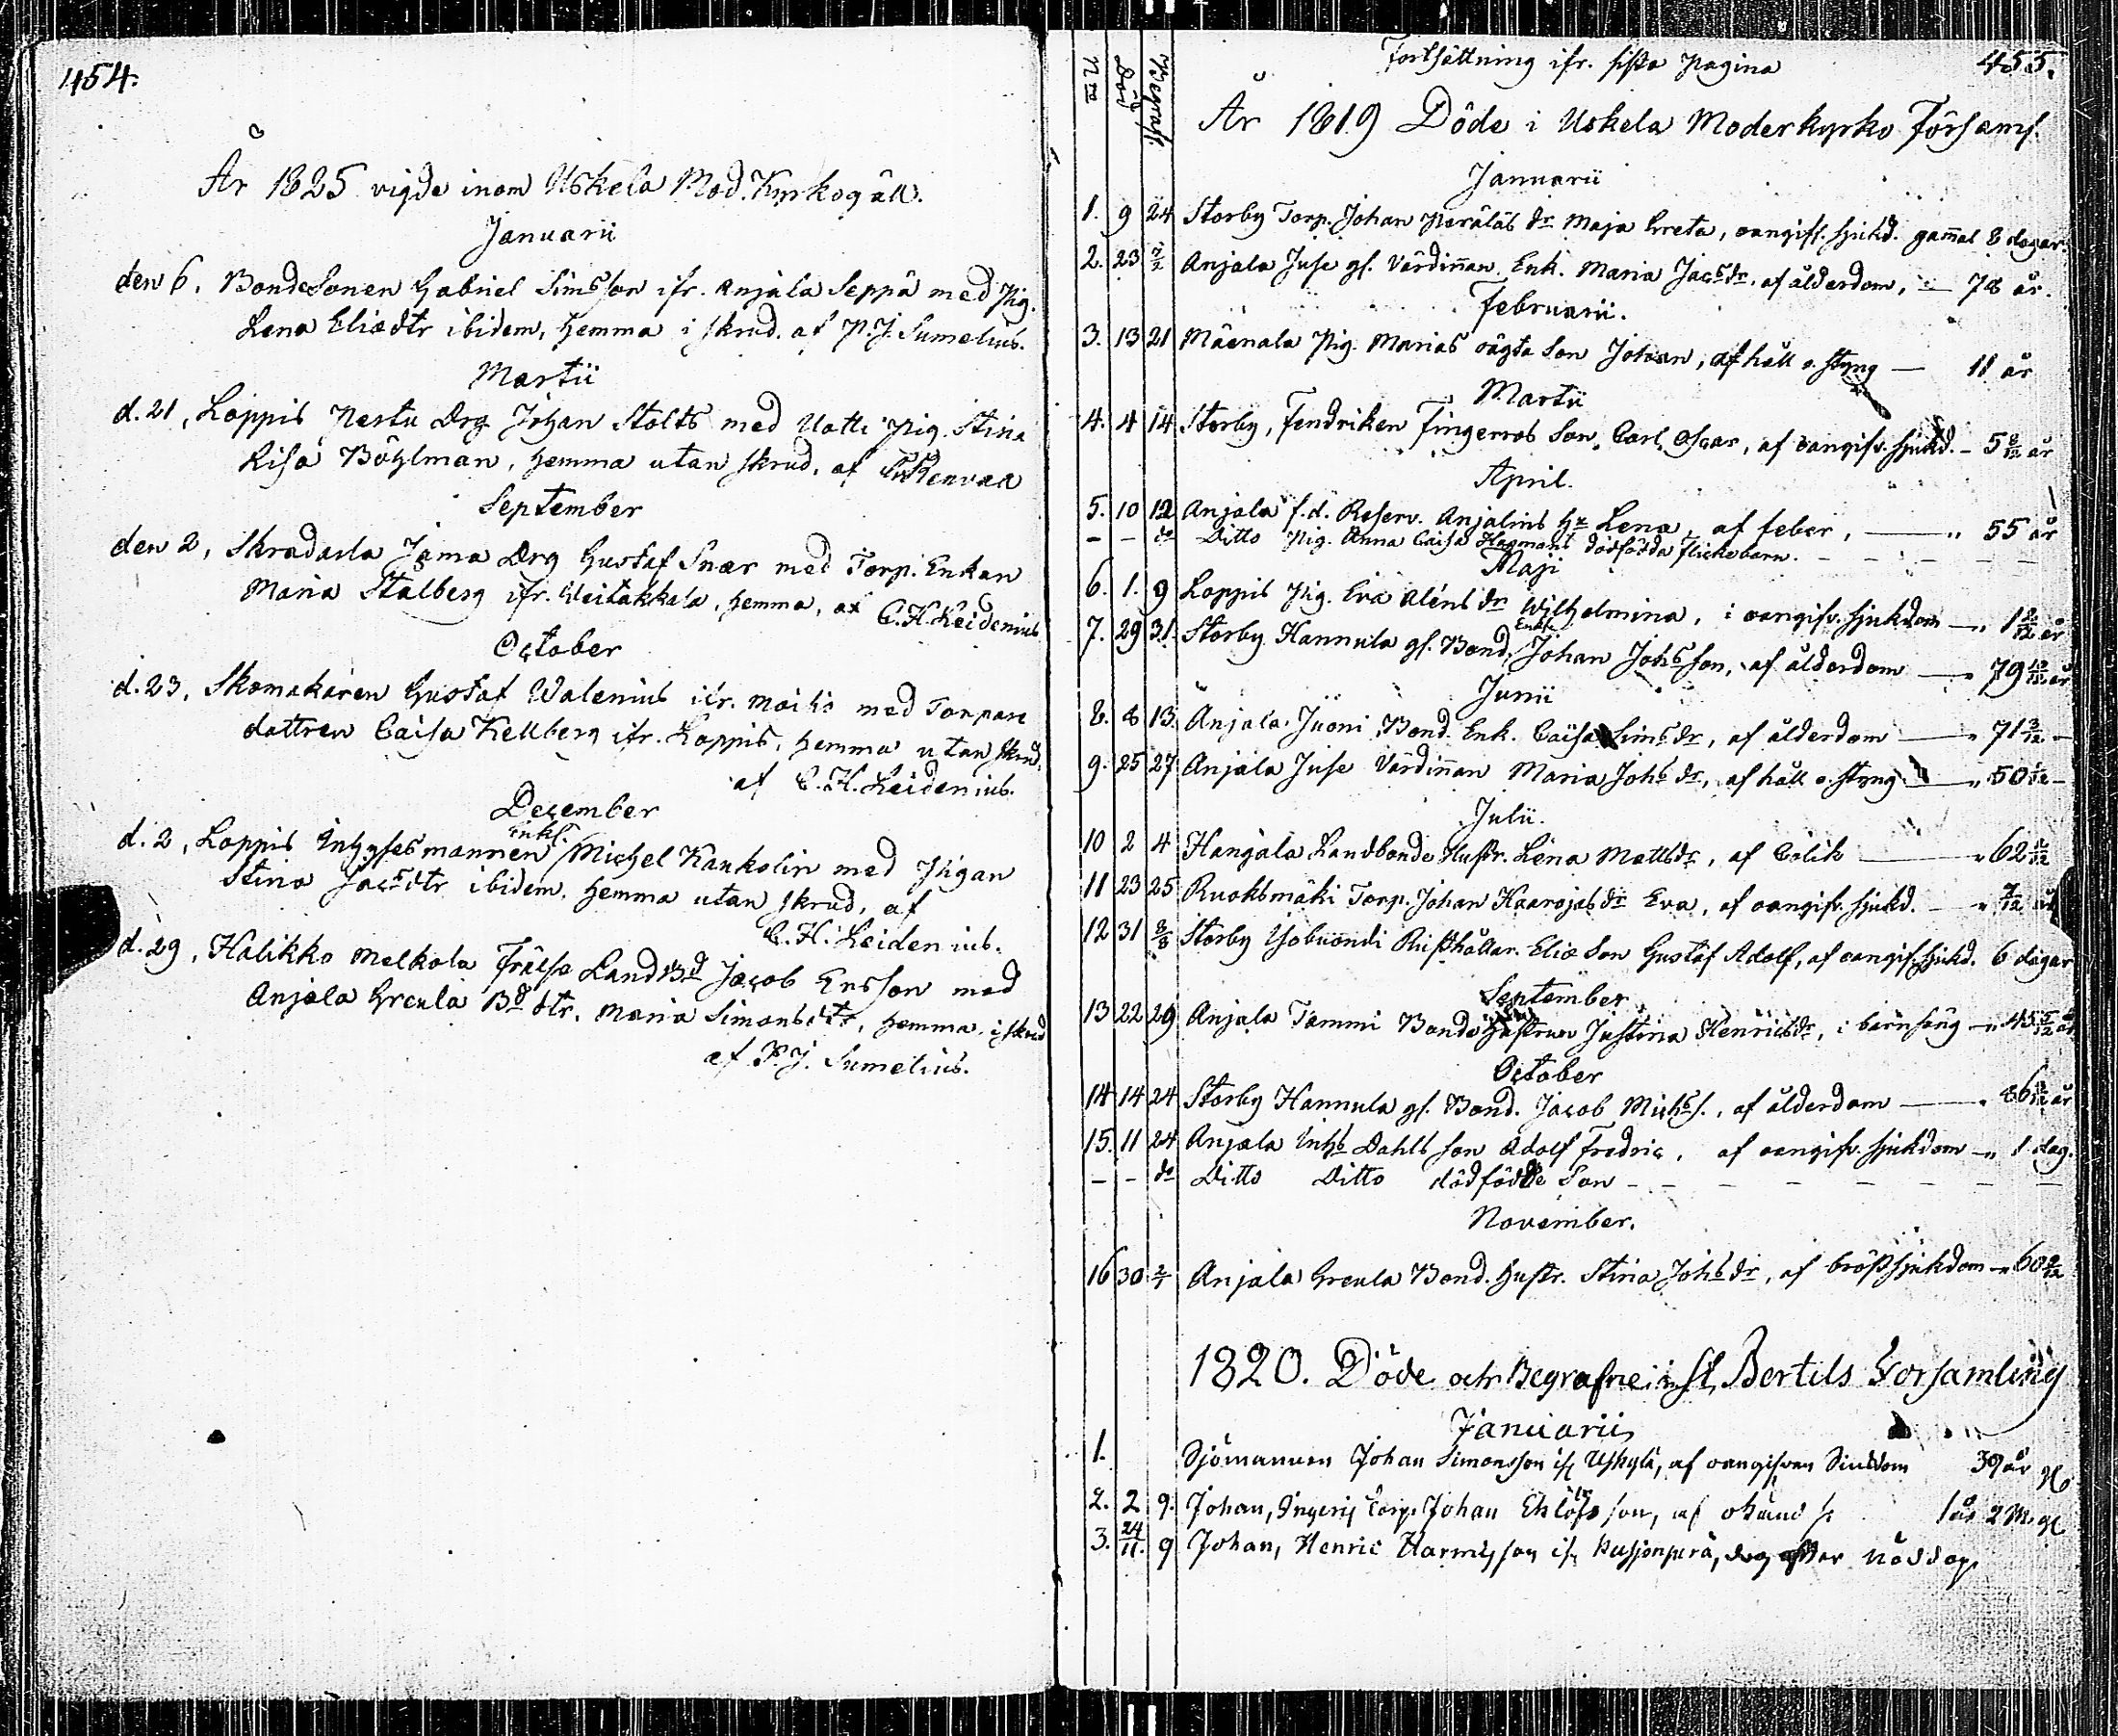 454.
År 1825 vigde inom Uskela Mod. Kyrkogäll.
Januarii
den 6. BondeSonen Gabriel Simsson ifr. Anjala Seppä med Pig.
Lena Eliædtr ibidem, hemma i skrud. af P.J. Sumelius.
Martii
d. 21, Loppis Pertu Drg Johan Stolts med Uotti Pig. Stina
Lisa Böhlman, hemma utan skrud, af
September
den 2, Skradarla Jama Drg Gustaf Snar med Torp. Enkan
Maria Stalberg ifr. Veitakkala, hemma, af C.H. Leidenius
October
d. 23, Skomakaren Gustaf Walenius ifr. Moisio med Torpare
dottren Caisa Kellberg ifr. Loppis, hemma utan skrud,
af C.H. Leidenius.
December
d. 2, Loppis Inhyses mannen Enkl. Michel Kankolin med Pigan
Stina Jacsdtr ibidem, hemma utan skrud, af
C.H. Leidenius.
d. 29, Halikko Melkola Frälse LandBd Jacob Ersson med
Anjala Greula Bd dtr. Maria Simonsdtr, hemma i skrud
af P.J. Sumelius.
Fortsättning ifr. sista Pagina 455.
Nro Död Begrafv.
År 1819 Döde i Uskela Moderkyrko Församl.
Januarii
1. 9 24 Storby Torp. Johan Peräläs dr Maja Greta, oangifv. sjukd. gamal 8 dagar
2. 23 7/2 Anjala Juse gl. Värdinnan Enk. Maria Jacsdr, af ålderdom, — 78 år.
Februarii.
3. 13 21 Mäenala Pig. Marias oägta Son Johan, af håll o. styng — 11 år
Martii
4. 4 14 Storby, Fendriken Fingerroos Son, Carl Oscar, af oangifv. sjukd. - 5 8/12 år
April.
5. 10 12 Anjala f.d. Reserv. Anjalins hu Lena, af feber, — " 55 år
- - do Ditto Pig. Anna Caisa Hagmans dödfödda flickobarn. - - - - -
Maji
6. 1. 9 Loppis Pig. Eva Aléns dr Wilhelmina, i oangifv. sjukdom — " 1 8/12 år
7. 29 31. Storby Hannula gl. Bond. Enkl. Johan Johsson, af ålderdom — " 79 år
Junii
8. 8 13. Anjala Juoni Bond. Enk. Caisa Simsdr, af ålderdom — " 71 3/12 -
9. 25 27 Anjala Juse Värdinnan Maria Johsdr, af håll o. styng — " 50 -
Julii.
10 2 4 Hangala Landbonde Hustr. Lena Mattsdr, af Colik — " 62
11 23 25 Ruoksmäki Torp. Johan Haarojas dr Eva, af oangifv. sjukd. — " 7/12 år
12 31 8/8 Storby Yobuondi Rusthållar. Eliæ Son Gustaf Adolf, af oangifv. sjukd. 6 dagar
September
13 22 29 Anjala Tammi Bonde Hustrun Justina Henricsdr, i barnsäng — " 45 5/12 år
October
14 14 24 Storby Hannula gl. Bond. Jacob Michss., af ålderdom — " 86 år
15. 11 24 Anjala Inhs Dahls son Adolf Fredric, af oangifv. sjukdom — " 1 dag.
- - do Ditto Ditto dödfödde Son - - - - - - -
November.
16 30 2/1 Anjala Greula Bond. Hustr. Stina Johsdr, af bröstsjukdom — " 60 8/12
1820. Döde och Begrafne i St. Bertils Församling
Januarii
1. Sjömannen Johan Simonsson ifr Uskyla, af oangifven Siukdom 39 år
2. 2 9. Johan, Ingeris Torp. Johan son, af okänd s. 1 år 2 M.
3. 24/11. 9 Johan, Henric son ifr drg efter nöddop